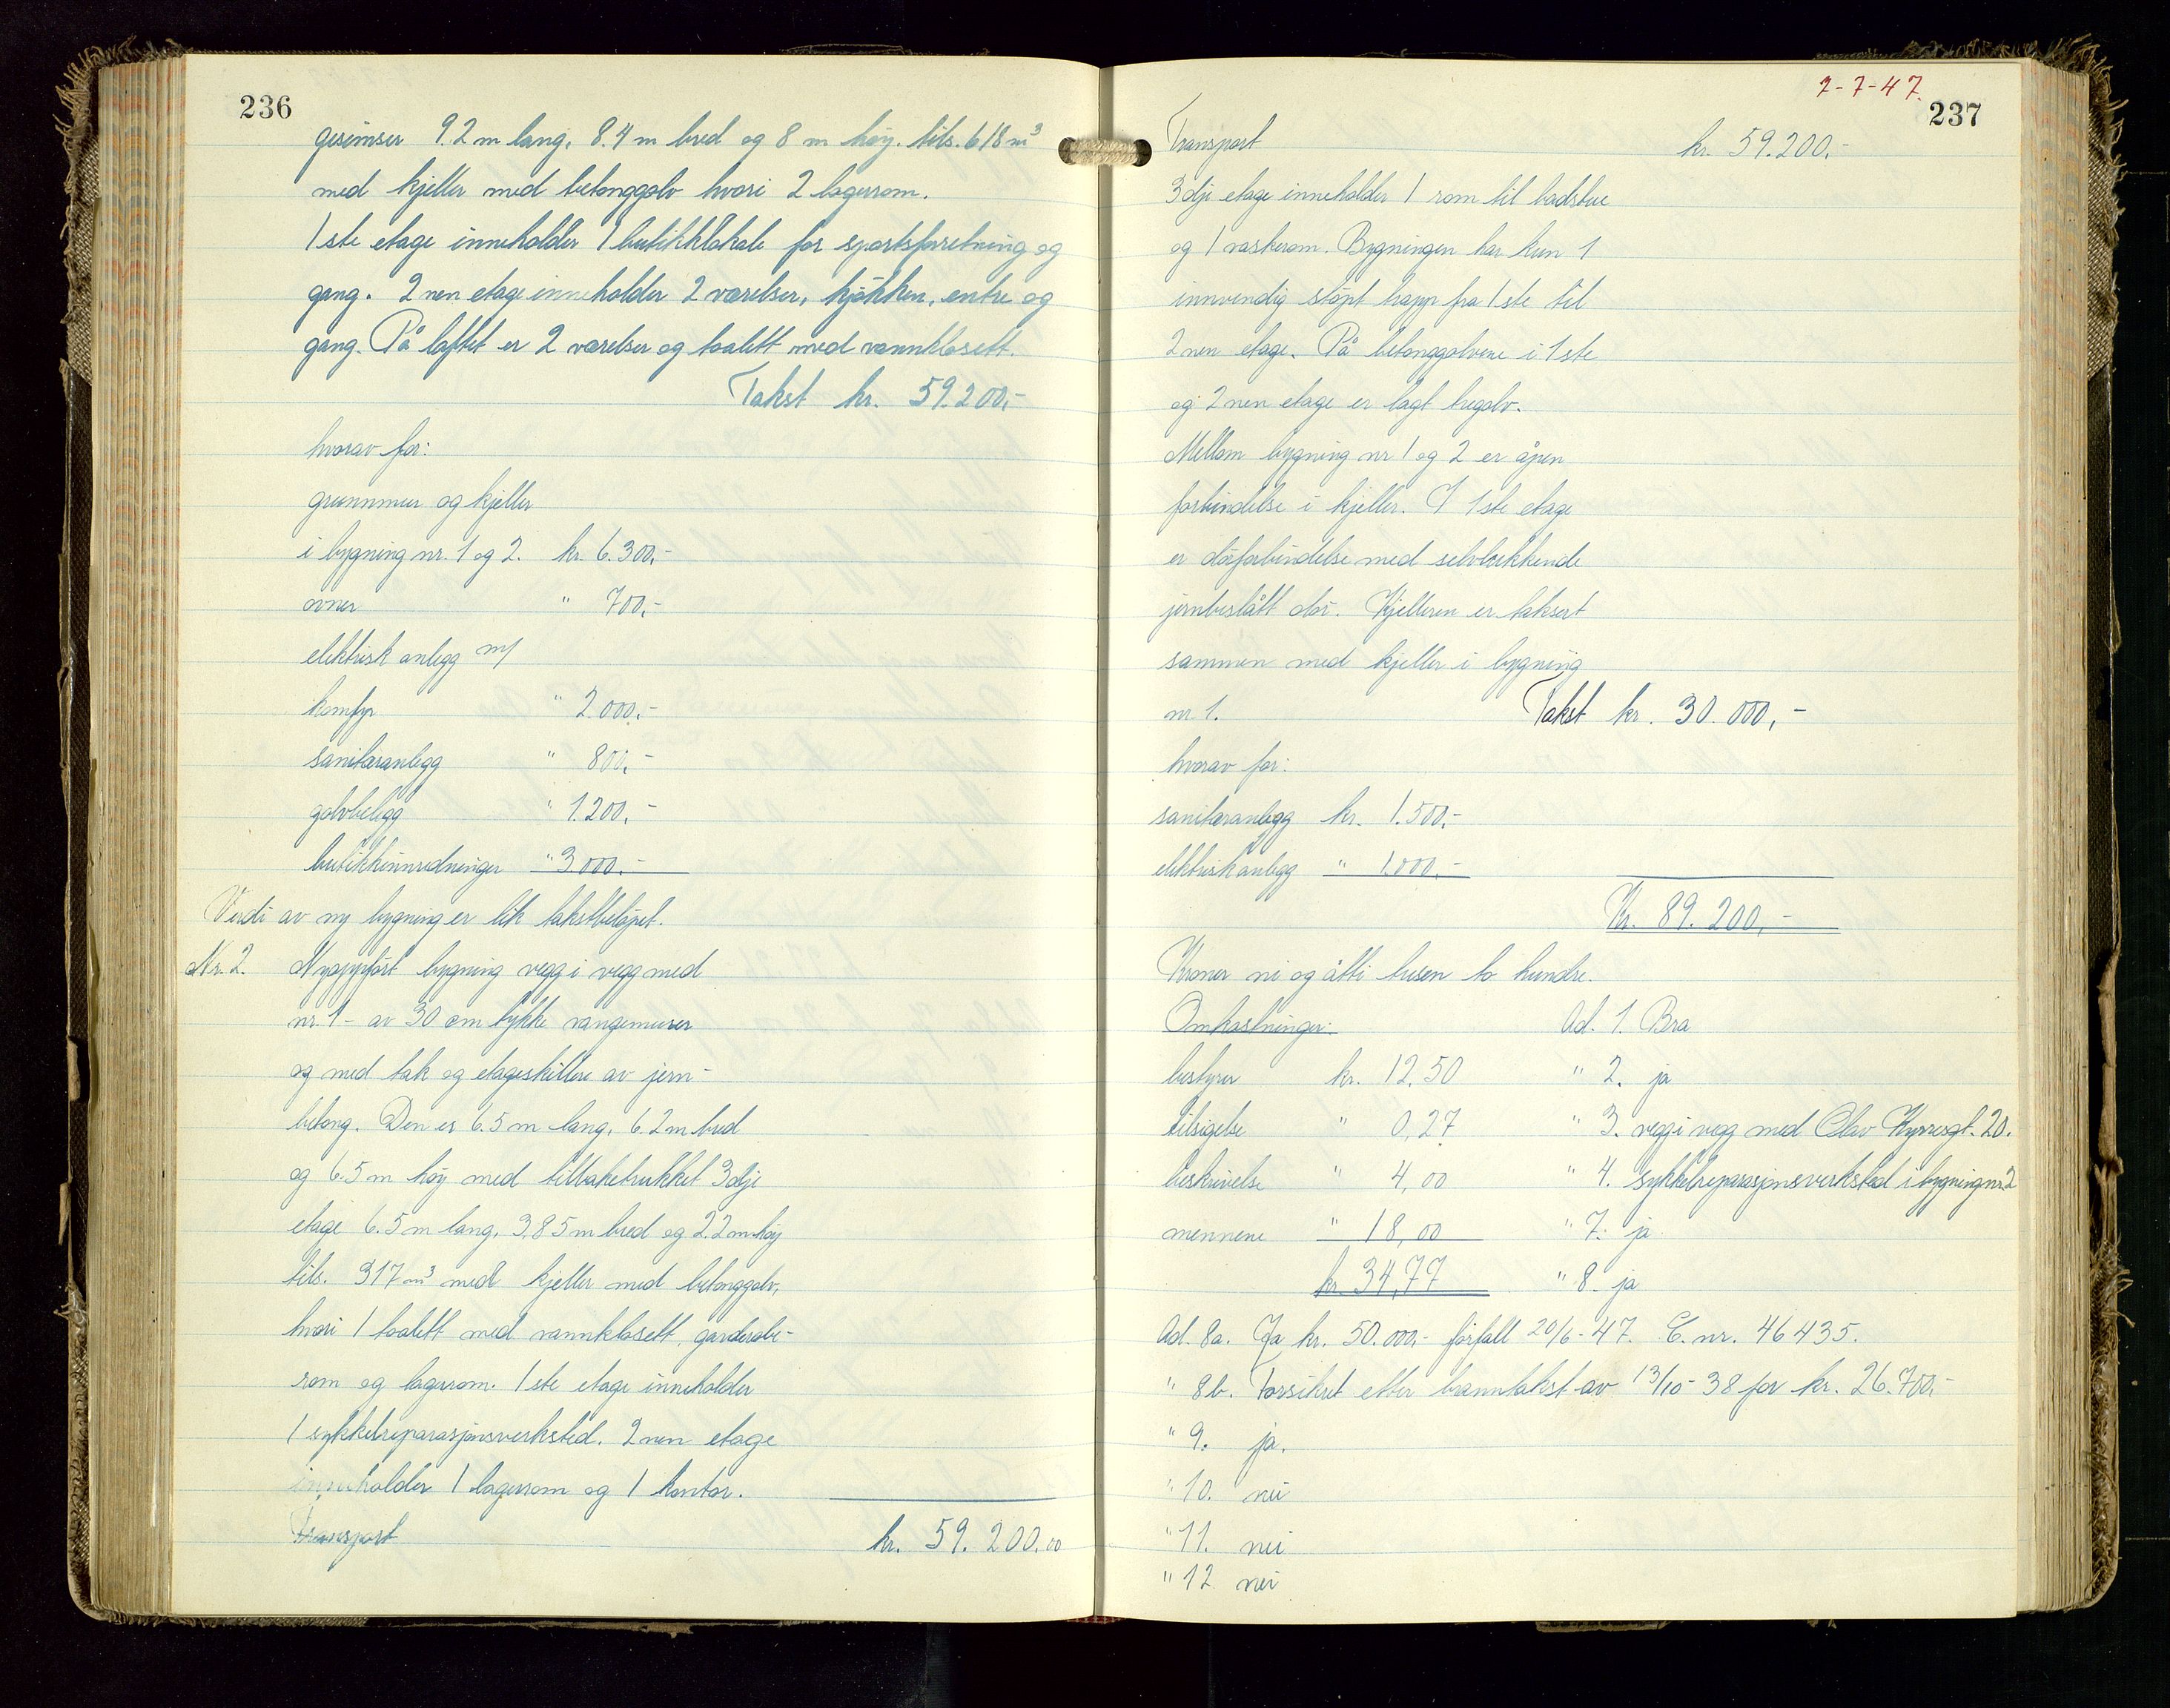 236
gesimser 9.2 m lang, 8.4 m bred og 8 m høy. tils. 618 m³
med kjeller med betonggolv hvori 2 lagerrom.
1ste etage inneholder 1 butikklokale for sportsforretning og
gang. 2nen etage inneholder 2 værelser, kjøkken, entre og
gang. På loftet er 2 værelser og toalett med vannklosett.
Takst kr. 59.200,-
hvorav for:
grunnmur og kjeller
i bygning nr. 1 og 2. kr. 6.300,-
ovner " 700,-
elektrisk anlegg m/
komfyr " 2.000,-
sanitæranlegg " 800,-
golvbelegg " 1.200,-
butikkinnredninger " 3000,-
Verdi av ny bygning er lik takstbeløpet.
Nr. 2. Nyoppført bygning vegg i vegg med
nr. 1 - av 30 cm tykke vangemurer
og med tak og etageskillere av jern-
betong. Den er 6.5 m lang, 6.2 m bred
og 6.5 m høy med tilbaketrukket 3dje
etage 6.5 m lang, 3.85 m bred og 2.2 m høy
tils. 317 m³ med kjeller med betonggolv,
hvori 1 toalett med vannklosett, garderobe-
rom og lagerrom. 1ste etage inneholder
1 sykkelreparasjonsverksted. 2nen etage
inneholder 1 lagerrom og 1 kontor.
Transport kr. 59.200.00
2-7-47.
237
Transport kr. 59.200,-
3dje etage inneholder 1 rom til badstue
og 1 vaskerom. Bygningen har kun 1
innvendig støpt trapp fra 1ste til
2nen etage. På betonggolvene i 1ste
og 2nen etage er lagt tregolv.
Mellom bygning nr 1 og 2 er åpen
forbindelse i kjeller. I 1ste etage
er dørforbindelse med selvlukkende
jernbeslått dør. Kjelleren er taksert
sammen med kjeller i bygning
nr. 1. Takst kr. 30.000,-
hvorav for:
sanitæranlegg kr. 1.500,-
elektrisk anlegg " 1.000,-
Kr. 89.200,-
Kroner ni og åtti tusen to hundre.
Omkostninger: Ad. 1. Bra
bestyrer kr. 12.50 " 2. ja
tilsigelse " 0,27 " 3. vegg i vegg med Olav Kyrresgt. 20.
beskrivelse " 4,00 " 4. sykkelreparasjonsverksted i bygning nr 2
mennene " 18,00 " 7. ja
kr. 34,77 " 8. ja
Ad. 8a. Ja kr. 50.000,- forfall 20/6-47. C. nr. 46435.
" 8b. Forsikret etter branntakst av 13/10-38 for kr. 26.700,-
" 9. ja.
" 10. nei
" 11. nei
" 12 nei